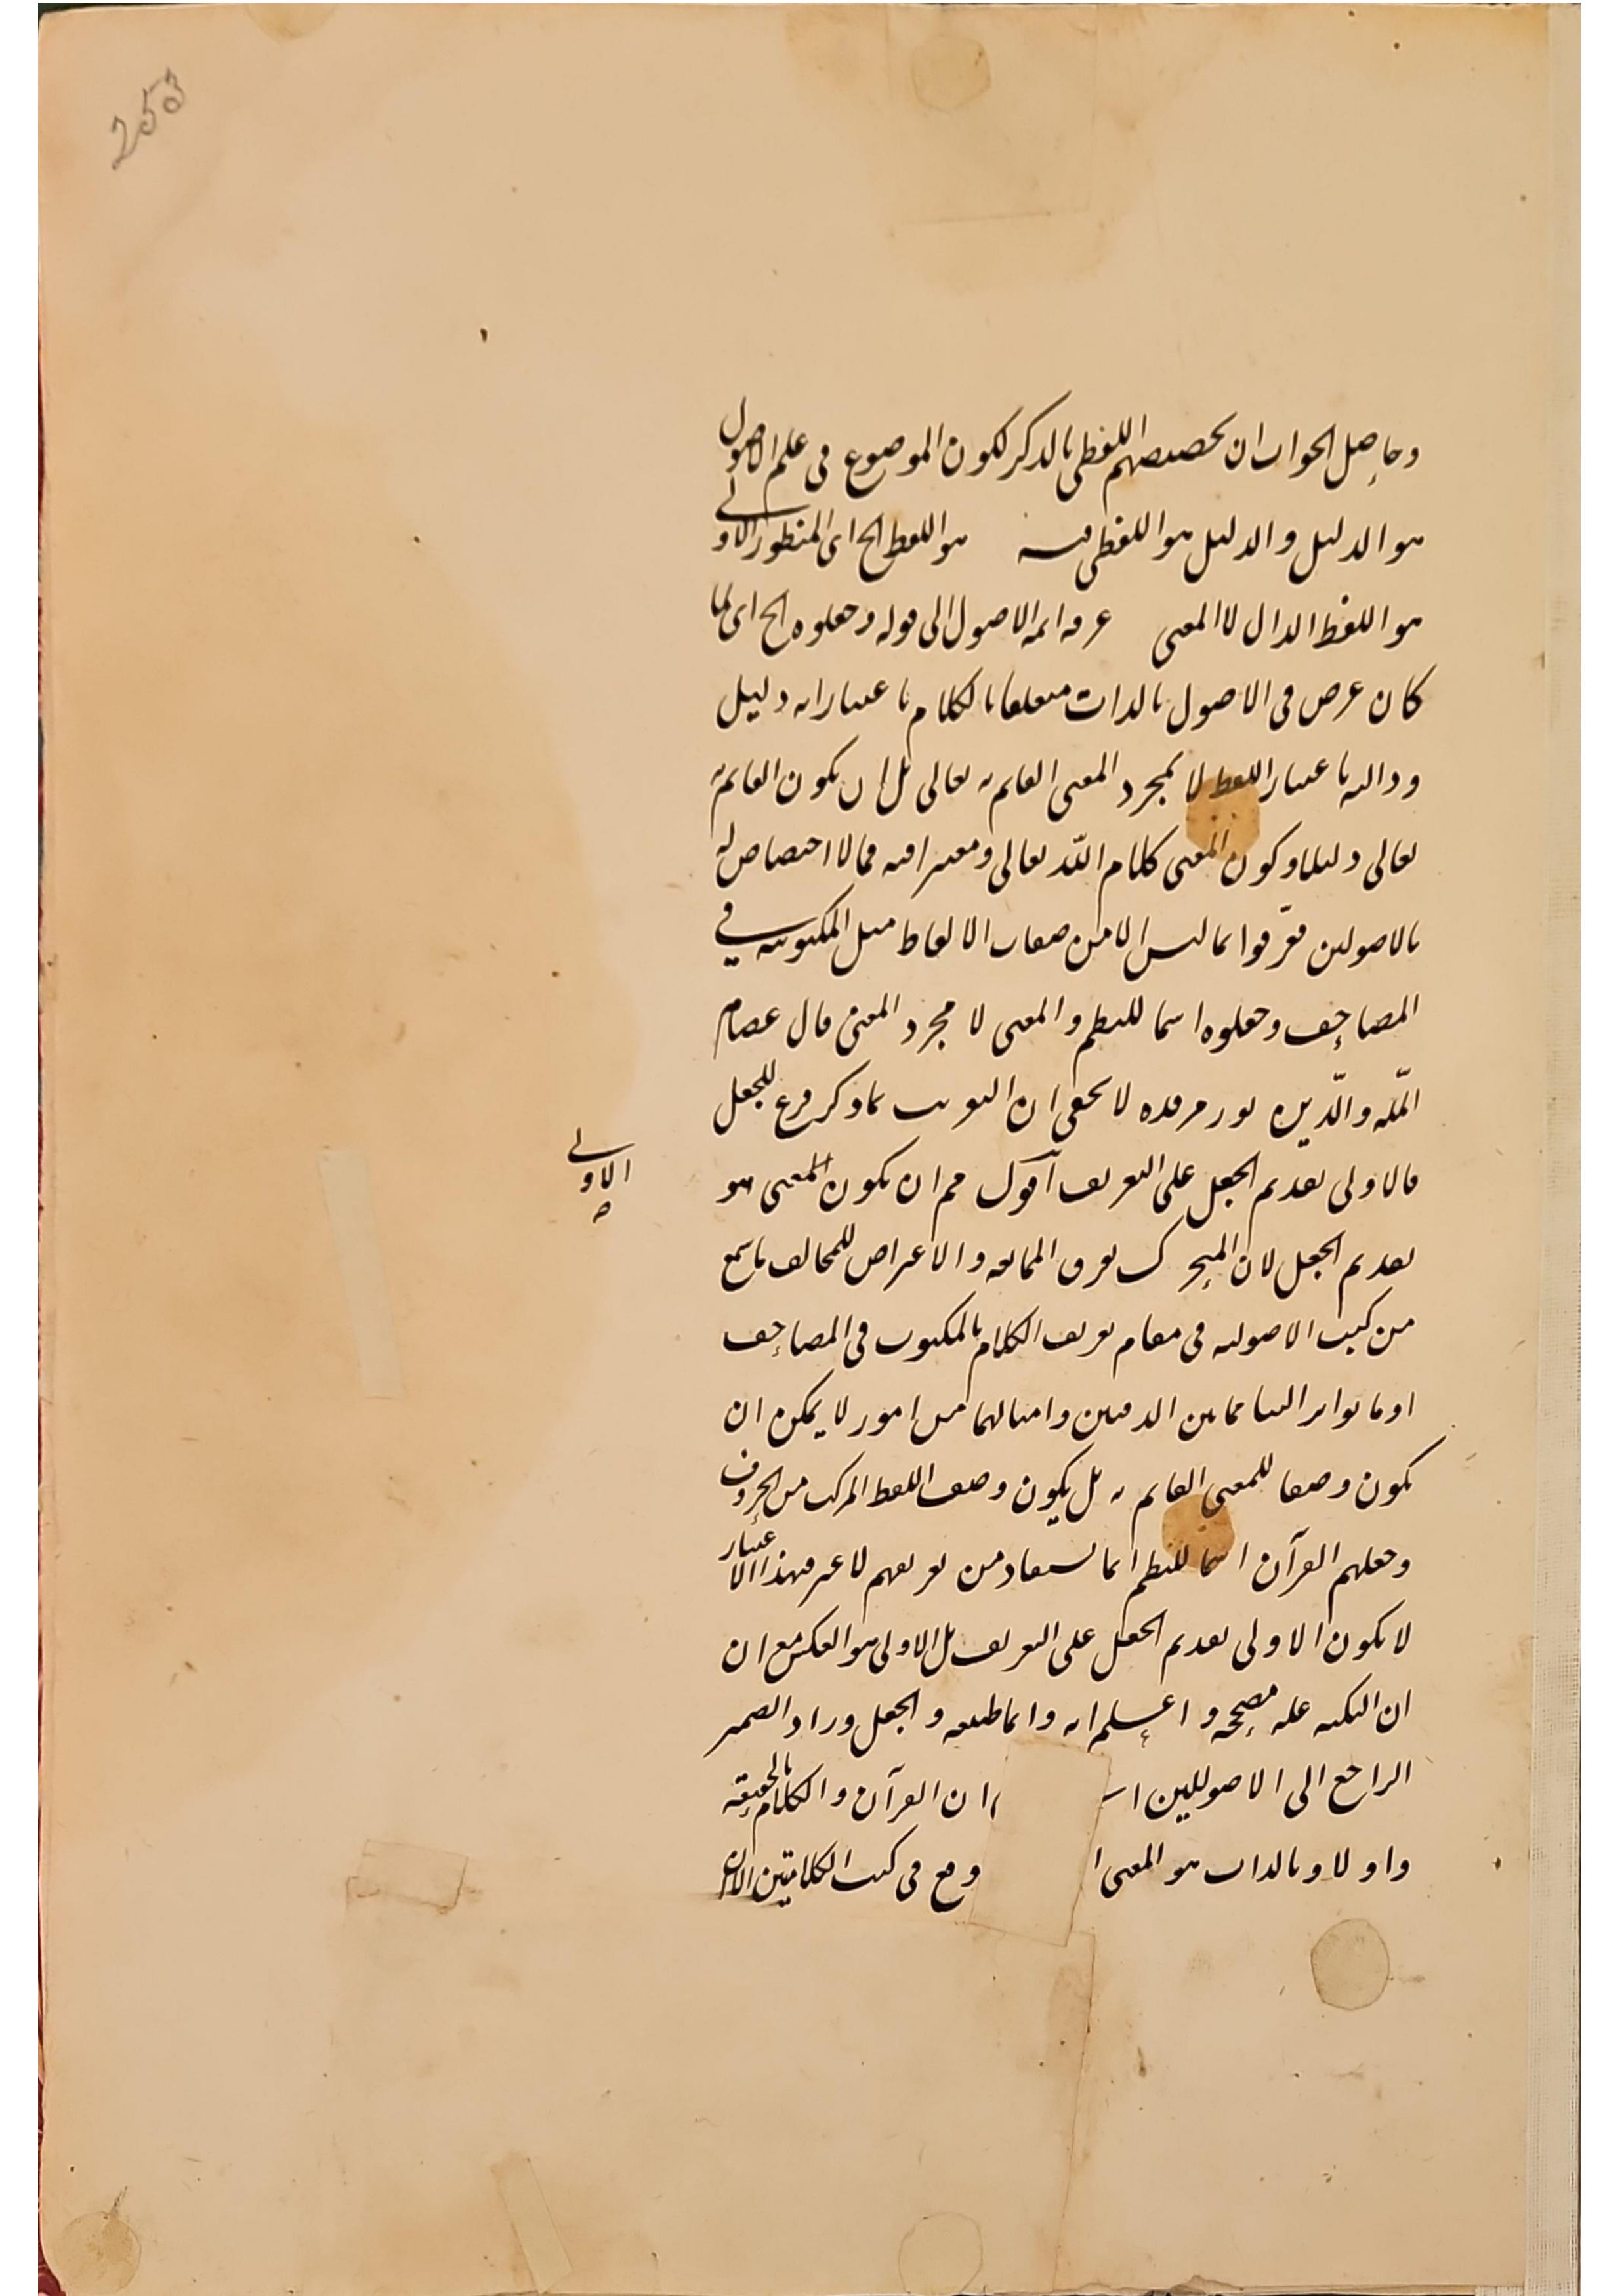 253
وحاصل الجواب ان تخصيصهم اللفظي بالذكر لكون الموضوع في علم الاصول
هو الدليل والدليل هو اللفظي فيه هو اللفظ الخ اى المنظور الاولى
هو اللفظ الدال لا المعنى عرفه ائمه الاصول الى قوله وجعلوه الخ اى لما
كان غرض في الاصول بالذات متعلقا بالكلام باعتبار انه دليل
ودالته باعتبار اللفظ لا بمجرد المعنى القائم به تعالى بل ان يكون القائم به
تعالى دليلا وكون المعنى كلام اللّه تعالى ومعتبرا فيه فمما لا اختصاص له
بالاصولين فعرّفوا بما ليس الا من صفات الالفاظ مثل المكتوبيه في
المصاحف وجعلوه اسما للنظم والمعنى لا مجرد المعنى قال عصام
الملّه والدّين نور مرقده لا يخفى ان التعريف بما ذكر فرع للجعل
فالاولى تقديم الجعل على التعريف آقول مم ان يكون المعنى هو
الاولى
تقديم الجعل لان يعرف المخالفه والاعراض للمخالف ما سمع
من كتب الاصوليه في مقام تعريف الكلام بالمكتوب في المصاحف
او ما تواتر الينا مما بين الدفتين وامثالهما من امور لا يمكن ان
يكون وصفا للمعنى القائم به بل يكون وصف اللفظ المركب من الحروف
وجعلهم القرآن اسما للنظم انما يستفاد من تعريفهم لا غير فهذا الاعتبار
لا يكون الاولى تقديم الجعل على التعريف بل الاولى هو العكس مع ان
ان النكته عله مصححه واعلم انه وانما والجعل الضمير
الراجع الى الاصوليين ان القرآن والكلام بالحقيقه
واولا وبالذات هو المعنى وقع في كتب الكلاميين